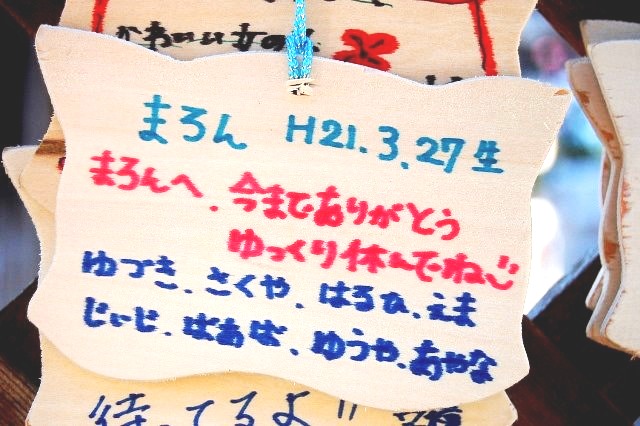 かわいい女の
まろん H21.3.27生
まろんへ、今までありがとう
ゆっくり休んでね
ゆづき、さくや、はるひ、えま
じぃじ、ばあば、ゆうや、あやな
待ってるよ"